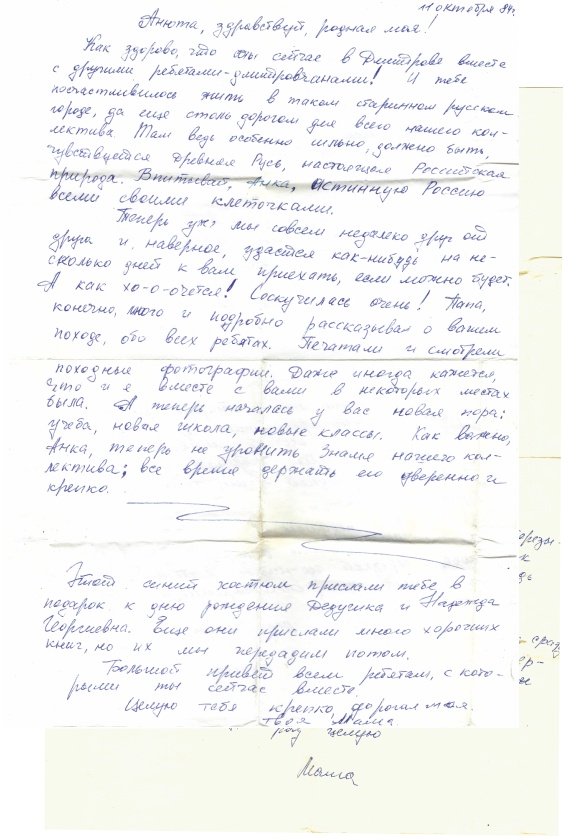 11 октября 84г.
Анюта, здравствуй, родная моя!
Как здорово, что вы сейчас в Дмитрове вместе
с другими ребятами-дмитровчанами! И тебе
посчастливилось жить в таком старинном русском
городе, да еще столь дорогом для всего нашего кол-
лектива. Там ведь особенно сильно, должно быть,
чувствуется Древняя Русь, настоящая Российская
природа. Впитывай, Анка, Истинную Россию
всеми своими клеточками.
Теперь уж мы совсем недалеко друг от
друга и, наверное, удастся как-нибудь на не-
сколько дней к вам приехать, если можно будет.
А как хо-о-очется! Соскучилась очень! Папа,
конечно, много и подробно рассказывал о вашем
походе, обо всех ребятах. Печатали и смотрели
походные фотографии. Даже иногда кажется,
что и я вместе с вами в некоторых местах
была. А теперь началась у вас новая пора:
учеба, новая школа, новые классы. Как важно,
Анка, теперь не уронить Знамя нашего кол-
лектива; все время держать его уверенно и
крепко.
Этот синий костюм прислали тебе в
подарок к дню рождения Дедушка и Надежда
Георгиевна. Еще они прислали много хороших
книг, но их мы передадим потом.
Большой привет всем ребятам, с кото-
рыми ты сейчас вместе.
Целую тебя крепко, дорогая моя.
твоя Мама.
раз целую
Мама